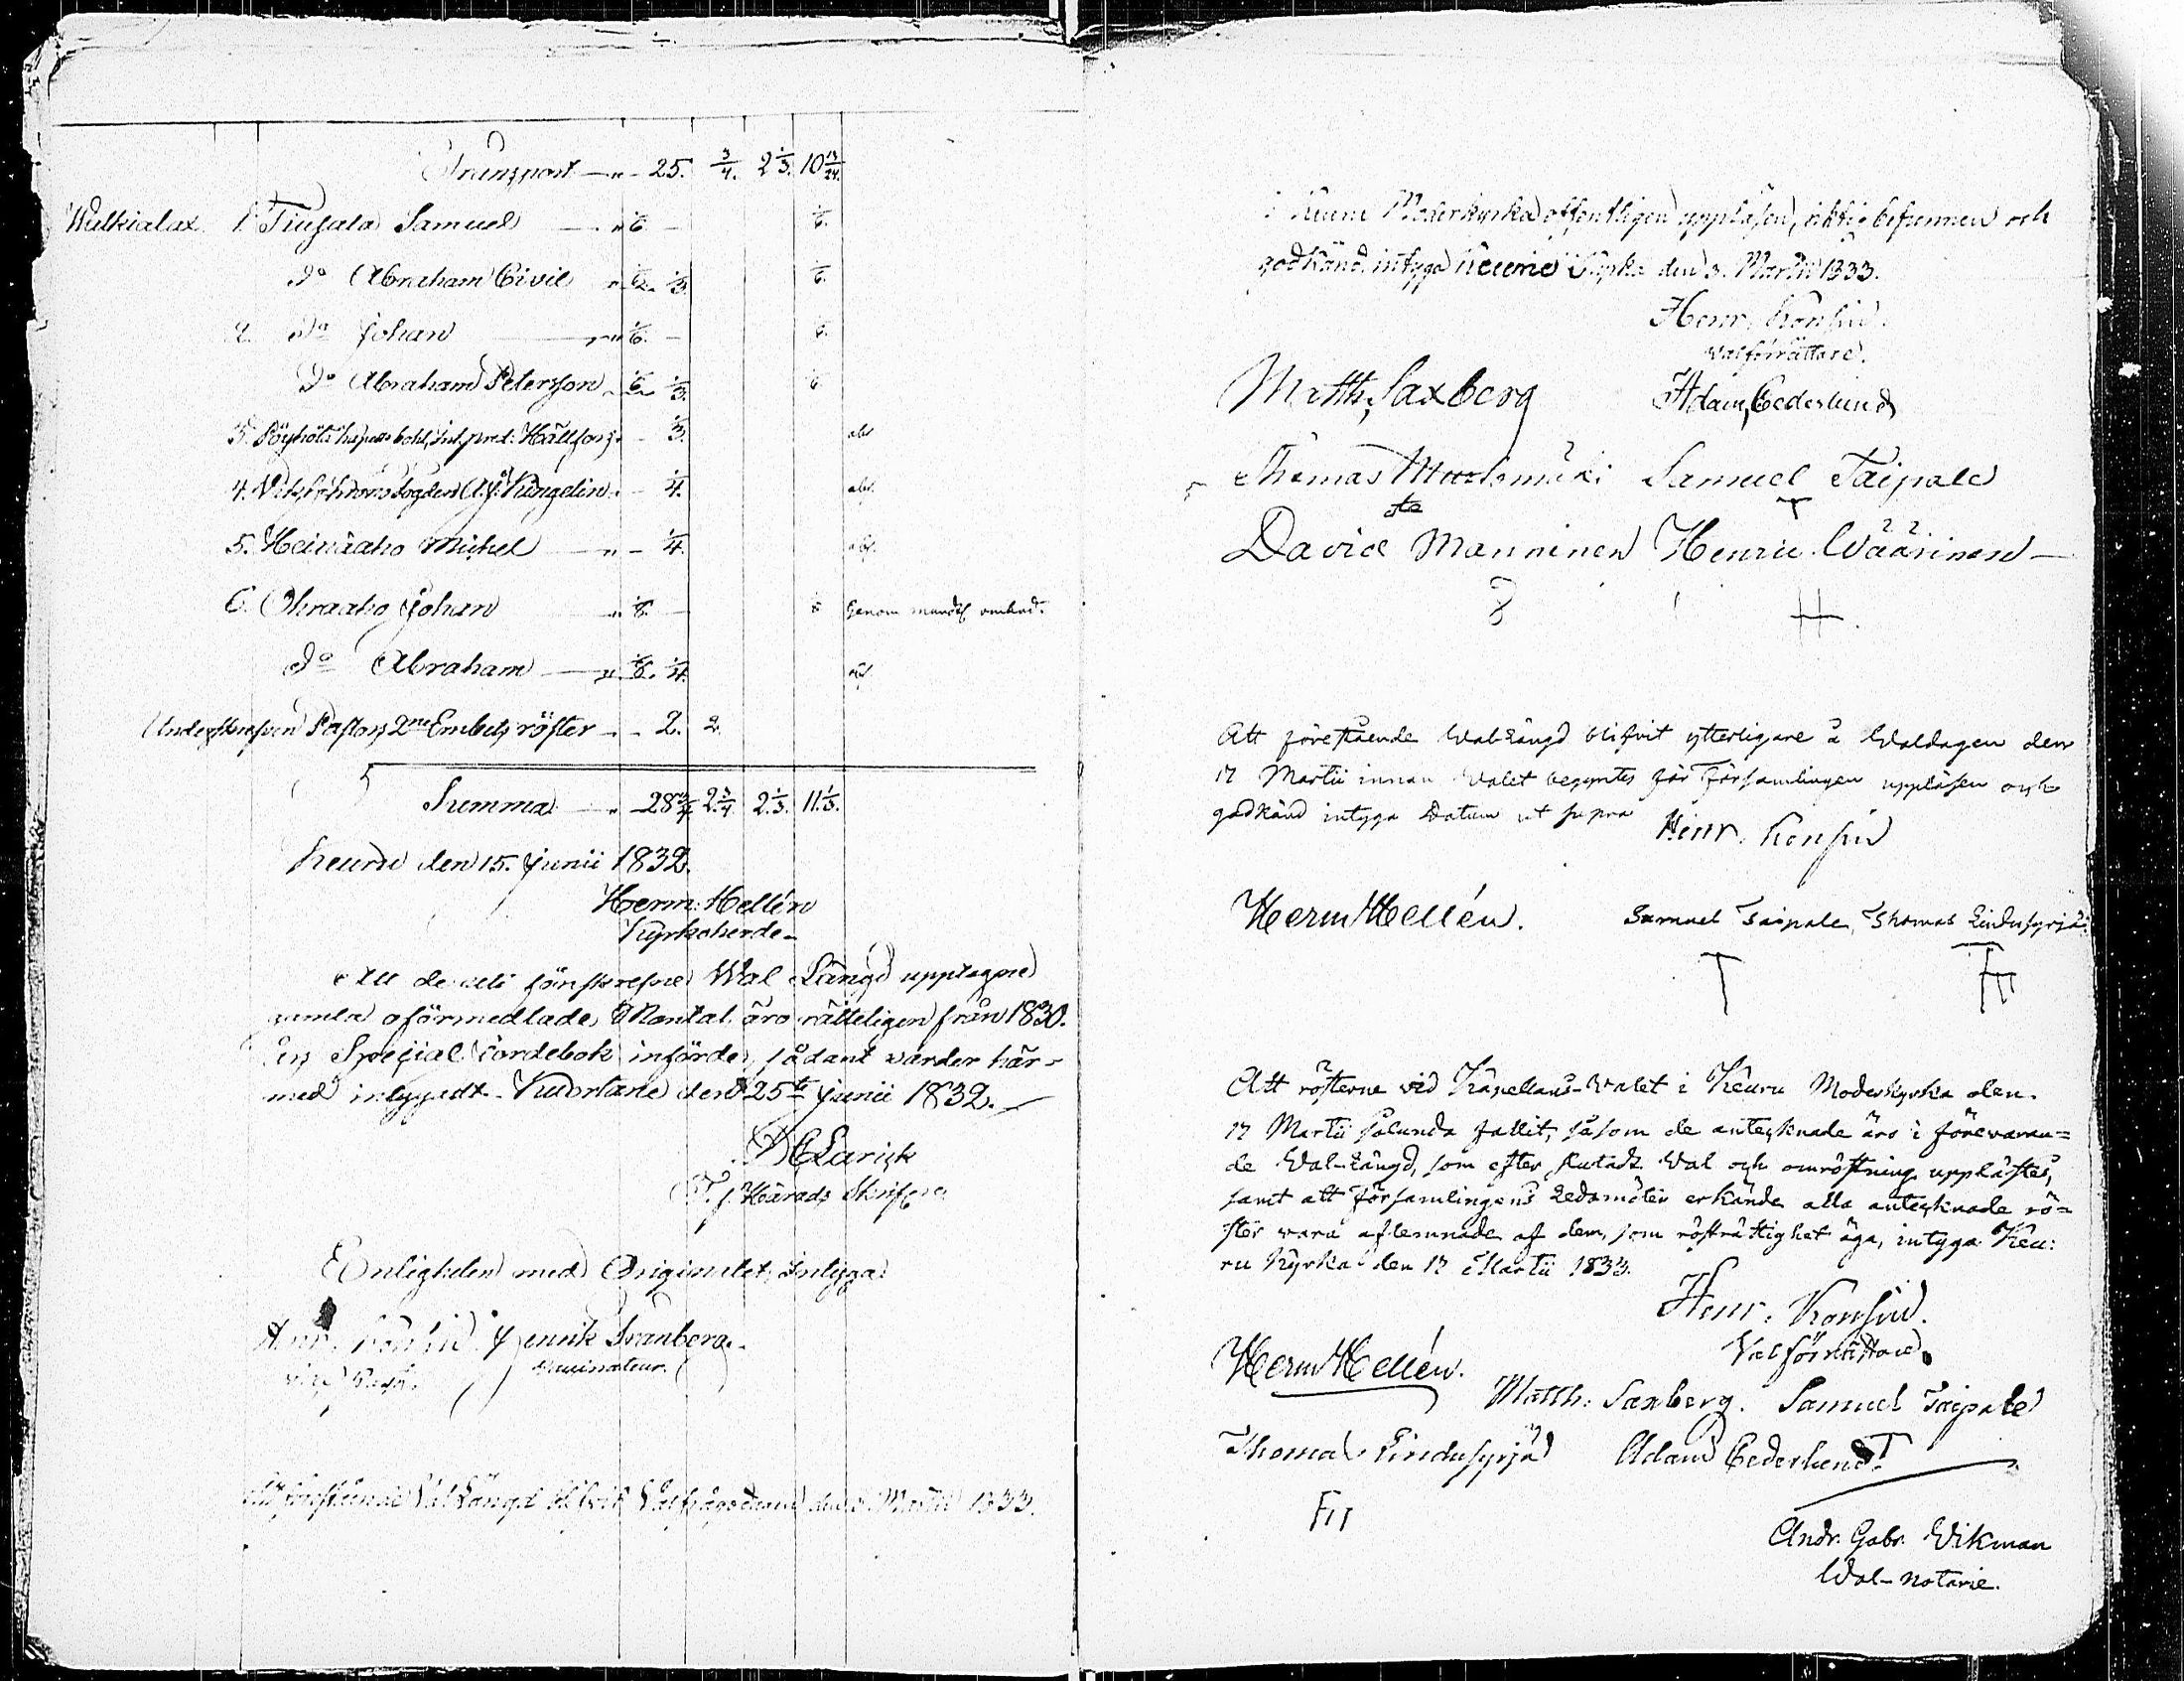 Transport — " — 25. 3/4. 2 1/3. 10 13/24.
Wulkialax 1. Tiusala Samuel — " 1/6. — 1/6.
Do Abraham Civil " 1/6. 1/3. 1/6.
2. Do Johan — " 1/6. — 1/6.
Do Abraham Petersson " 1/6. 1/3. 1/6.
3. Hällfors. — 1/3. abs.
4. Kingelin — 1/4. abs.
5. Heinäaho Michel — " — 1/4. abs.
6. Ohraaho Johan " 1/8. — 1/8 Genom mundtl. ombud.
Do Abraham — " 1/8. 1/4. abs.
Underskrefven Pastors 2ne Embets röster — — 2. 2.
Summa — " — 28 3/4 2 3/4. 2 1/3. 11 1/3.
Keuru den 15. Junii 1832.
Herm: Hellén
Kyrkoherde.
Att de uti förskrefne Wal Längd upptagne
gamla oförmedlade Mantal äro rätteligen från 1830.
års Special Jordebok införde, sådant warder här-
med intygadt. Kuortane den 25te Junii 1832.
Larisk
T. f. Härads Skrifvare
Enligheten med Originalet, intyga
Henr. Konsin Henrik Granberg.
vice Past.
Att förestående Wal Längd blifvit Wal frågodomen den 3. Martii 1833.
i Keuru Moderkyrka offentligen uppläsen, riktig befunnen och
godkänd, intyga Keuru Kyrka den 3. Martii 1833.
Henr. Konsin.
Valförrättare.
Matth. Saxberg Adam Cederlund
Thomas Samuel Taipale
David Manninen Henric Wäärinen —
Att förestående Wal-Längd blifvit ytterligare å Waldagen den
17 Martii innan Walet begyntes för Församlingen uppläsen och
godkänd intyga Datum ut supra Henr. Konsin
Herm Hellén. Samuel Taipale, Thomas Lindusyrjä
T
Att rösterne vid Kapellans-Walet i Keuru Moderkyrka den
17 Martii sålunda fallit, såsom de antecknade äro i förevaran=
de Wal-Längd, som efter slutadt Wal och omröstning upplästes,
samt att Församlingens Ledamöter erkände alla antecknade rö=
ster vara aflemnade af dem, som rösträttighet äga, intyga Keu:
ru Kyrka den 17 Martii 1833.
Henr. Konsin.
Valförrättare.
Herm Hellén.
Matth. Saxberg. Samuel Taipale
Thomas Lindusyrjä Adam Cederlund T
Andr. Gabr. Wikman
Wal-Notarie.